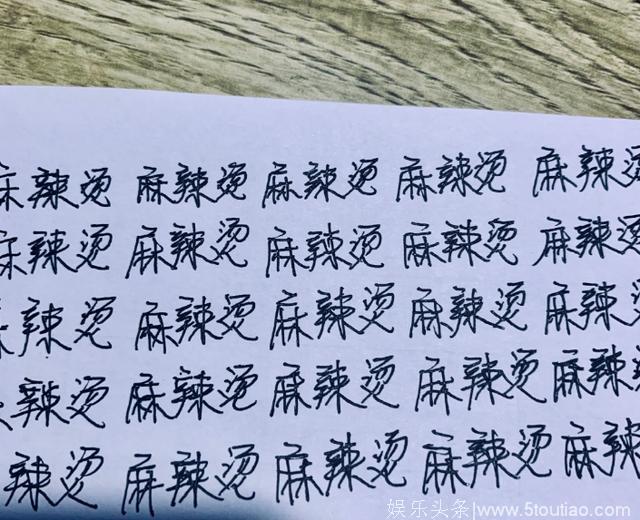 麻辣烫 麻辣烫 麻辣烫 麻辣烫 麻辣烫
麻辣烫 麻辣烫 麻辣烫 麻辣烫 麻辣烫
辣烫 麻辣烫 麻辣烫 麻辣烫 麻辣
辣烫 麻辣烫 麻辣烫 麻辣烫 麻辣
辣烫 麻辣烫 麻辣烫 麻辣烫 麻辣
娱乐头条|www.5toutiao.com